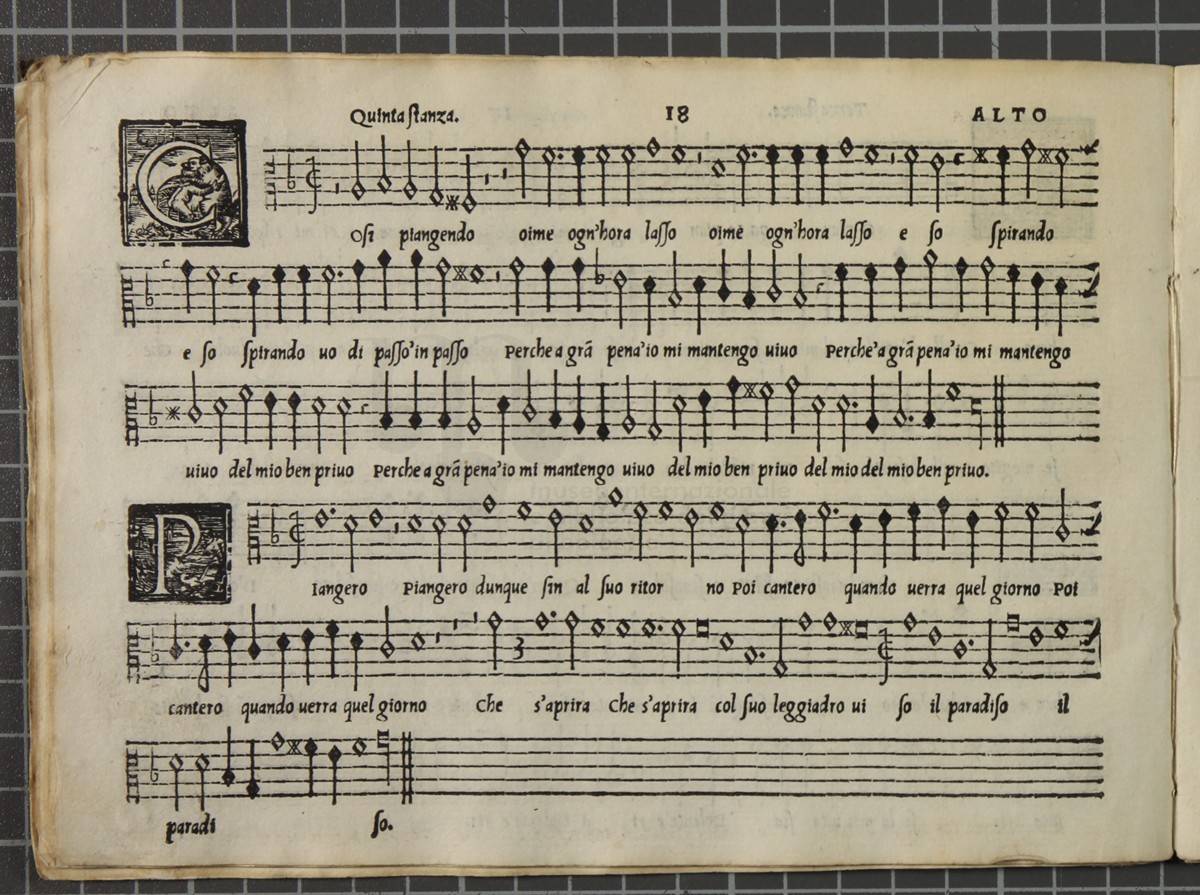 Quinta stanza. 18 ALTO
COsi piangendo oime ogn'hora lasso oime ogn'hora lasso e so spirando
e so spirando uo di passo'in passo Perche a grã pena'io mi mantengo uiuo Perche'a grã pena'io mi mantengo
uiuo del mio ben priuo Perche a grã pena'io mi mantengo uiuo del mio ben priuo del mio del mio ben priuo.
PIangero Piangero dunque sin al suo ritor no Poi cantero quando uerra quel giorno Poi
cantero quando uerra quel giorno Che s'aprira Che s'aprira col suo leggiadro ui so il paradiso il
paradi so.